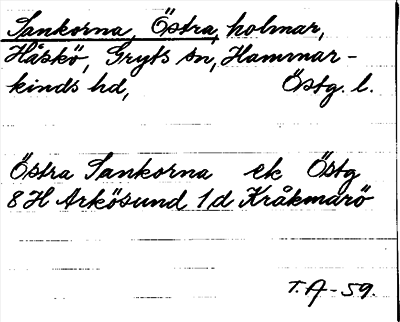 Sankorna, Östra, holmar,
Håskö, Gryts sn, Hammar-
kinds hd, Östg. l.
Östra Sankorna ek Östg
8H Arkösund 1d Kråkmarö
T.A-59.